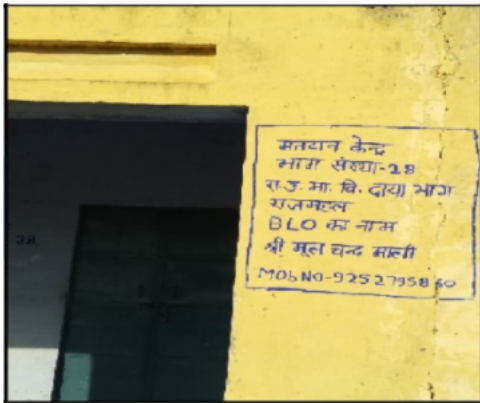 मतदान केन्द्र
भाग संख्या-28
रा.उ.मा.वि. दाया भाग
राजमहल
BLO का नाम
श्री मूल चन्द माली
MOb NO-9252795860
28